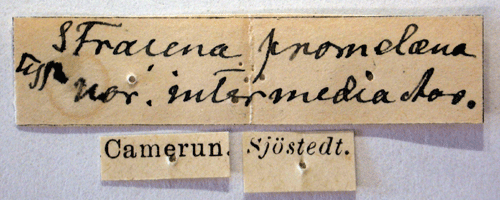 Stracena promelæna
Type
var. intermedia Aur.
Camerun. Sjöstedt.